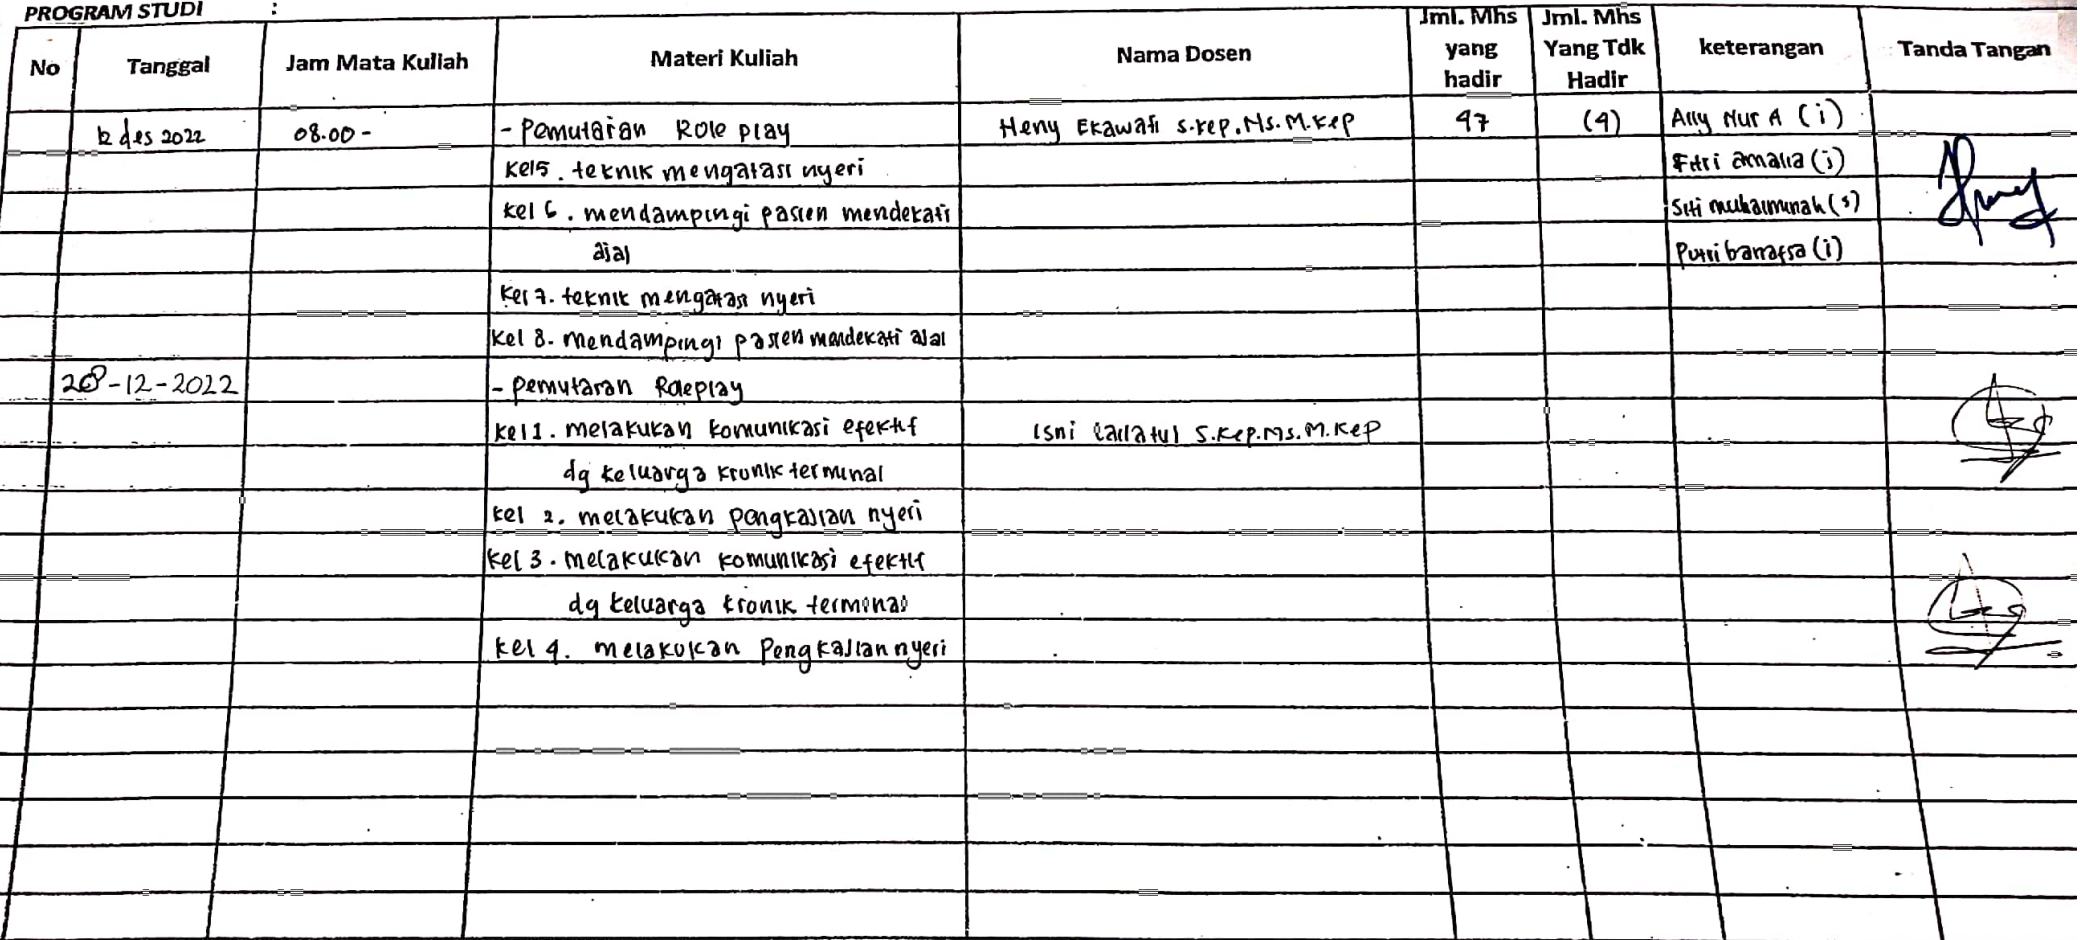 PROGRAM STUDI :
No Tanggal Jam Mata Kuliah Materi Kuliah Nama Dosen Jml. Mhs yang hadir Jml. Mhs Yang Tdk Hadir keterangan Tanda Tangan
12 des 2022 08.00 - - Pemutaran Role play Heny Ekawati S.Kep.Ns.M.Kep 47 (4) Ally Nur A (i)
Kel 5. teknik mengatasi nyeri Fitri amalia (i)
Kel 6. mendampingi pasien mendekati Siti muhaiminah (s)
ajal Putri (i)
Kel 7. teknik mengatasi nyeri
Kel 8. mendampingi pasien mendekati ajal
28-12-2022 - Pemutaran Roleplay
Kel 1. melakukan komunikasi efektif Isni Lailatul S.Kep.Ns.M.Kep
dg keluarga kronik terminal
Kel 2. melakukan pengkajian nyeri
Kel 3. melakukan komunikasi efektif
dg keluarga kronik terminal
Kel 4. melakukan Pengkajian nyeri